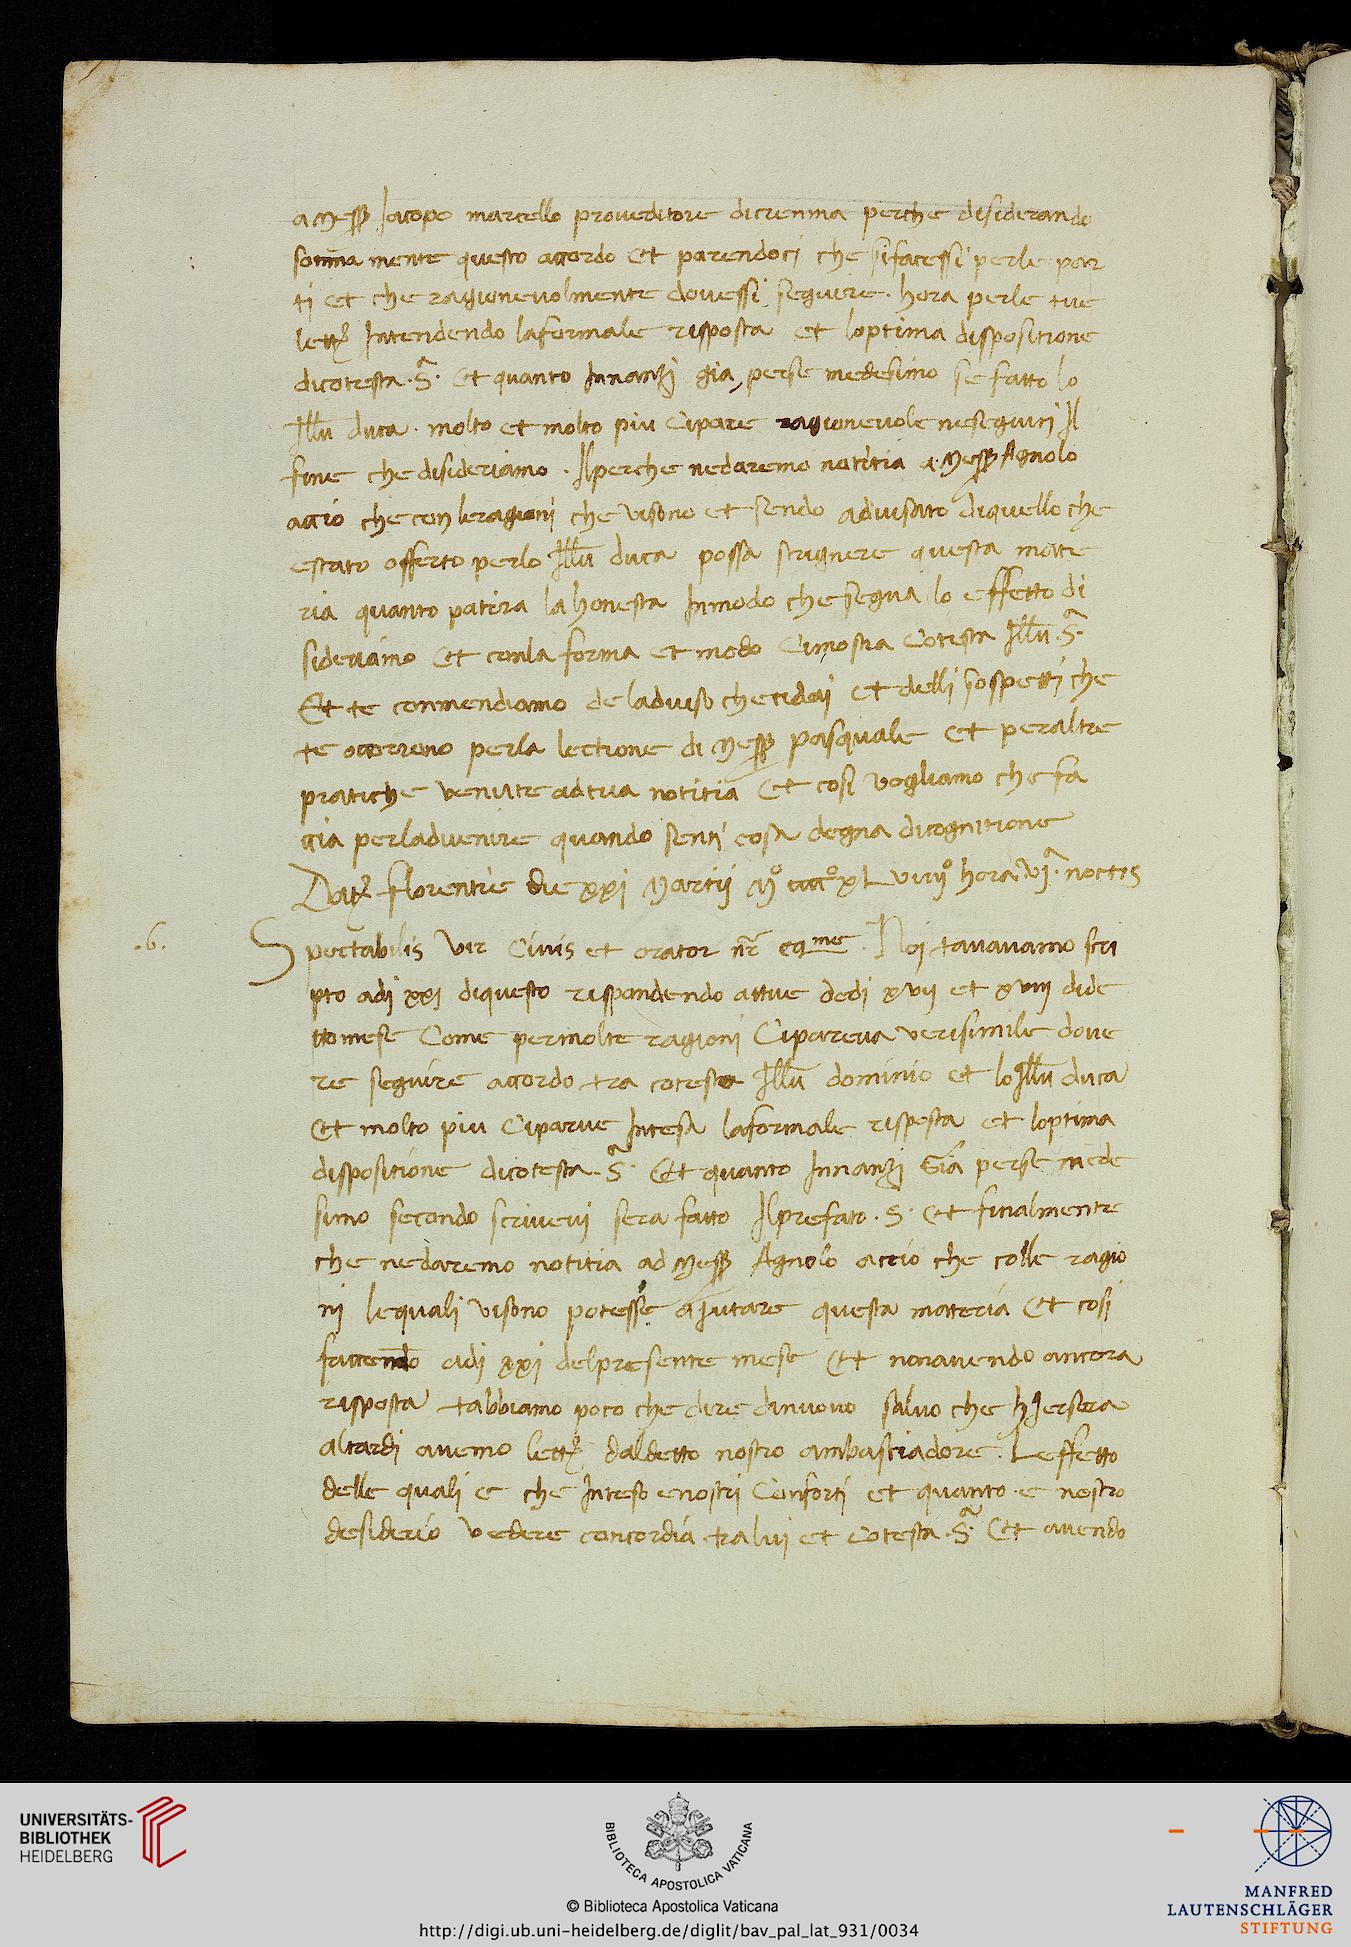 a Messer Jacopo marcello proveditore dicremma perche disiderando
somma mente questo accordo et parendoci che sifacessi perle par
ti et che ragionevolmente dovessi seguire. hora perle tue
lett Intendendo laformale risposta et loptima dispositione
dicotesta .S. et quanto Innanzi gia perse medesimo se fatto lo
Illu duca. molto et molto piu Cipare ragionevole neseguiri Il
fine che disideriamo. Ilperche nedaremo notitia a Messer Agnolo
accio che con leragioni che visono et sendo advisato diquello che
estato offerto perlo Illu duca possa strignere questa mate
ria quanto patira la honesta Inmodo che segua lo effetto di
sideriamo et conla forma et modo Cimostra Cotesta Illu .S.
Et te conmendiamo de ladviso che cidai et delli sospetti che
te occorreno perla lectione di Messer pasquale et peraltre
pratiche venute adtua notitia Et cosi vogliamo che fa
ccia perladvenire quando senti cosa degna dicognitione
Dat florentie die xxi Martii Mo cccco xLviiijo hora VJa noctis
.6. Spectabilis Vir Civis et orator nr eqme. Noi tavavamo scri
pto adi xxi diquesto rispondendo attue dedi xvij et xviij dide
tto mese Come permolte ragioni Cipareva verisimile dove
re seguire accordo tra cotesto Illu dominio et lo Illu duca
Et molto piu Ciparve Intesa laformale risposta et loptima
dispositione dicotesta .S. Et quanto Innanzi Gia perse mede
simo secondo scrivevi sera fatto Ilprefato .S. et finalmente
che nedaremo notitia ad Messer Agnolo accio che colle ragio
ni lequali visono potesse ajutare questa materia Et cosi
faccendo adi xxi delpresente mese Et nonavendo ancora
risposta tabbiamo poco che dire dinuovo salvo che hiersera
altardi avemo lett daldetto nostro ambasciadore. Leffetto
delle quali e che Inteso enostri Conforti et quanto e nostro
desiderio vedere concordia tralui et Cotesta .S. Et avendo
UNIVERSITÄTS-
BIBLIOTHEK
HEIDELBERG
BIBLIOTECA APOSTOLICA VATICANA
© Biblioteca Apostolica Vaticana
http://digi.ub.uni-heidelberg.de/diglit/bav_pal_lat_931/0034
MANFRED
LAUTENSCHLÄGER
STIFTUNG